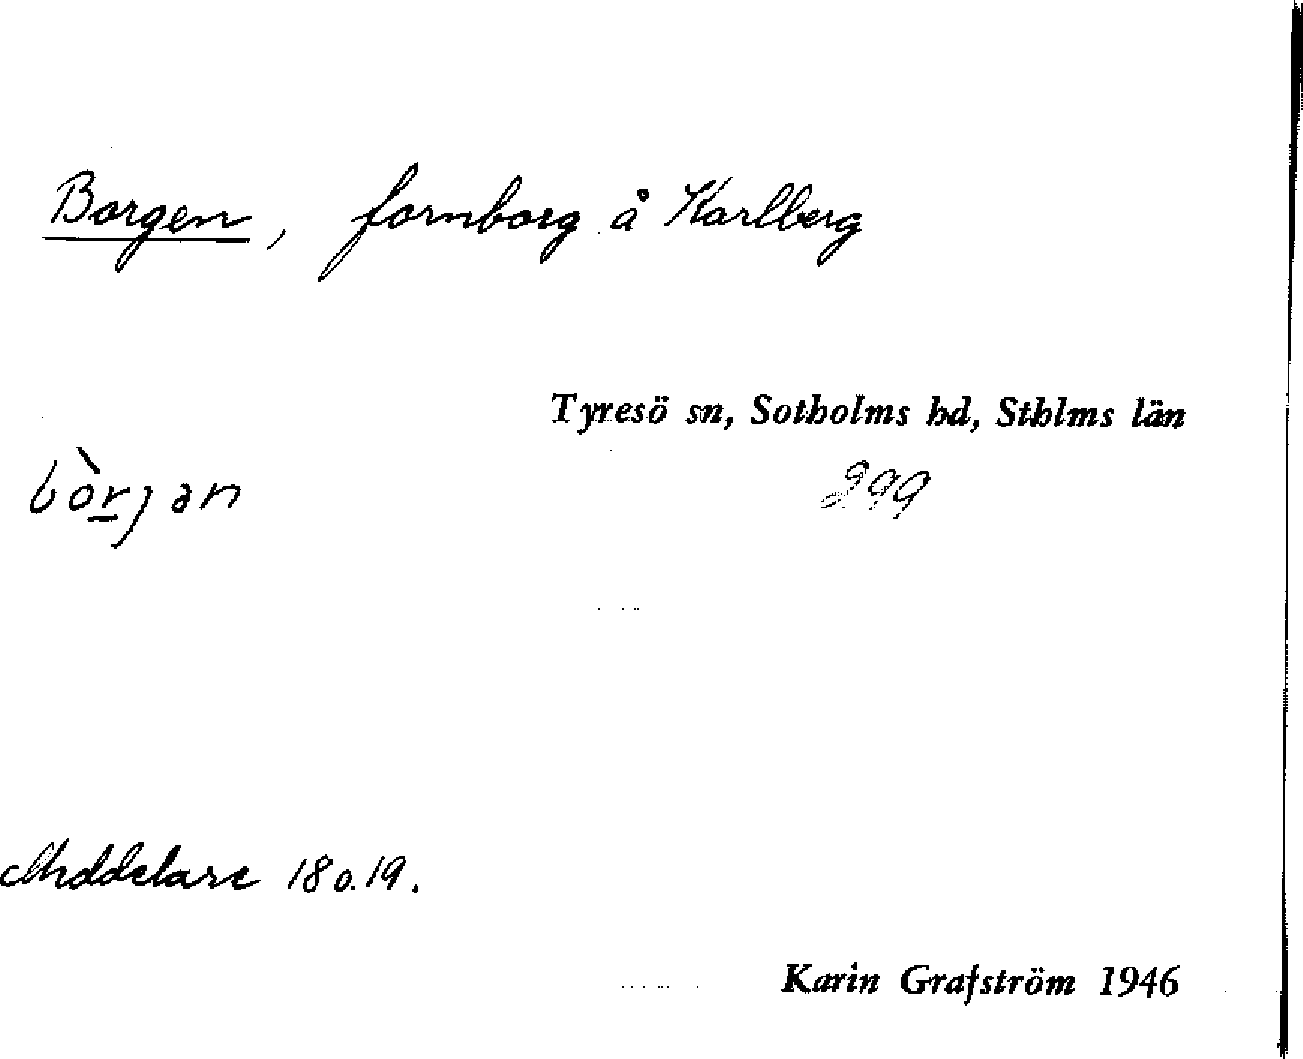 Borgen, fornborg å Karlberg
Tyresö sn, Sotholms hd, Sthlms län
bòrjan
299
Meddelare 18 o. 19.
Karin Grafström 1946